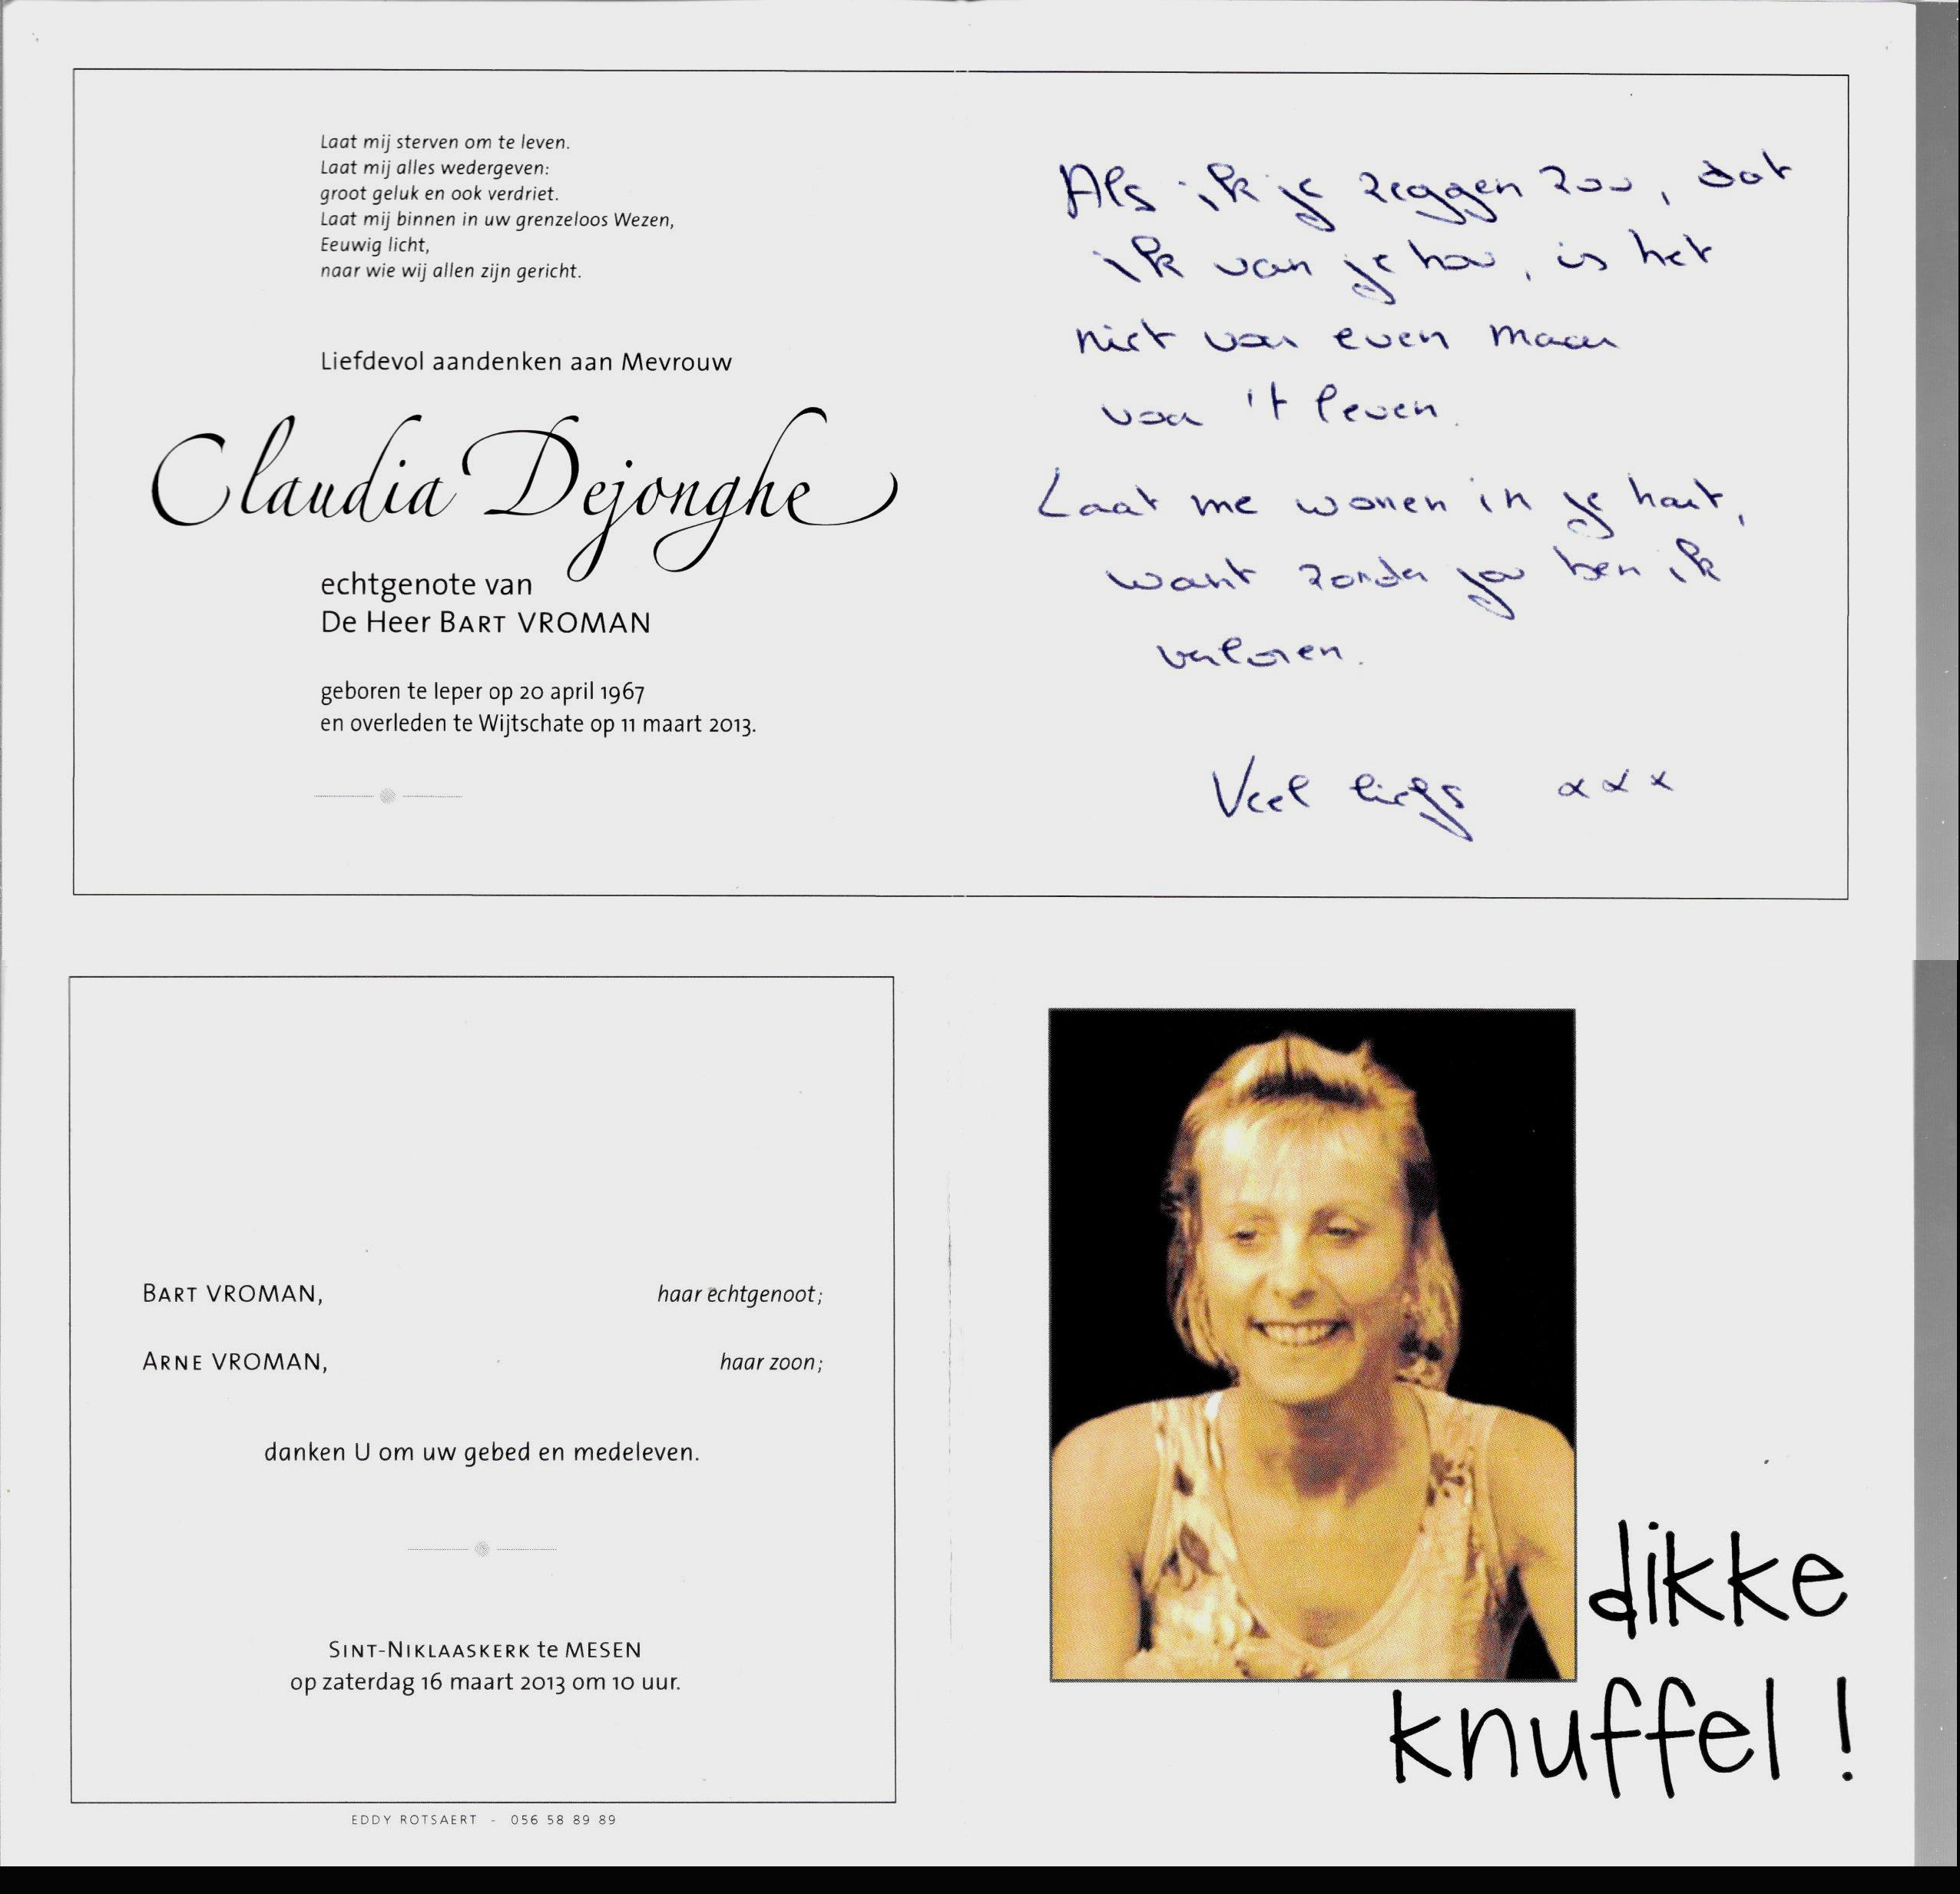 Laat mij sterven om te leven.
Laat mij alles wedergeven:
groot geluk en ook verdriet.
Laat mij binnen in uw grenzeloos Wezen,
Eeuwig licht,
naar wie wij allen zijn gericht.
Liefdevol aandenken aan Mevrouw
Claudia Dejonghe
echtgenote van
De Heer BART VROMAN
geboren te Ieper op 20 april 1967
en overleden te Wijtschate op 11 maart 2013.
Als ik je zeggen zou, dat
ik van je hou, is het
niet voor even maar
voor 't leven.
Laat me wonen in je hart,
want zonder jou ben ik
verloren.
Veel liefs xxx
BART VROMAN, haar echtgenoot;
ARNE VROMAN, haar zoon;
danken U om uw gebed en medeleven.
SINT-NIKLAASKERK te MESEN
op zaterdag 16 maart 2013 om 10 uur.
EDDY ROTSAERT - 056 58 89 89
dikke
knuffel !